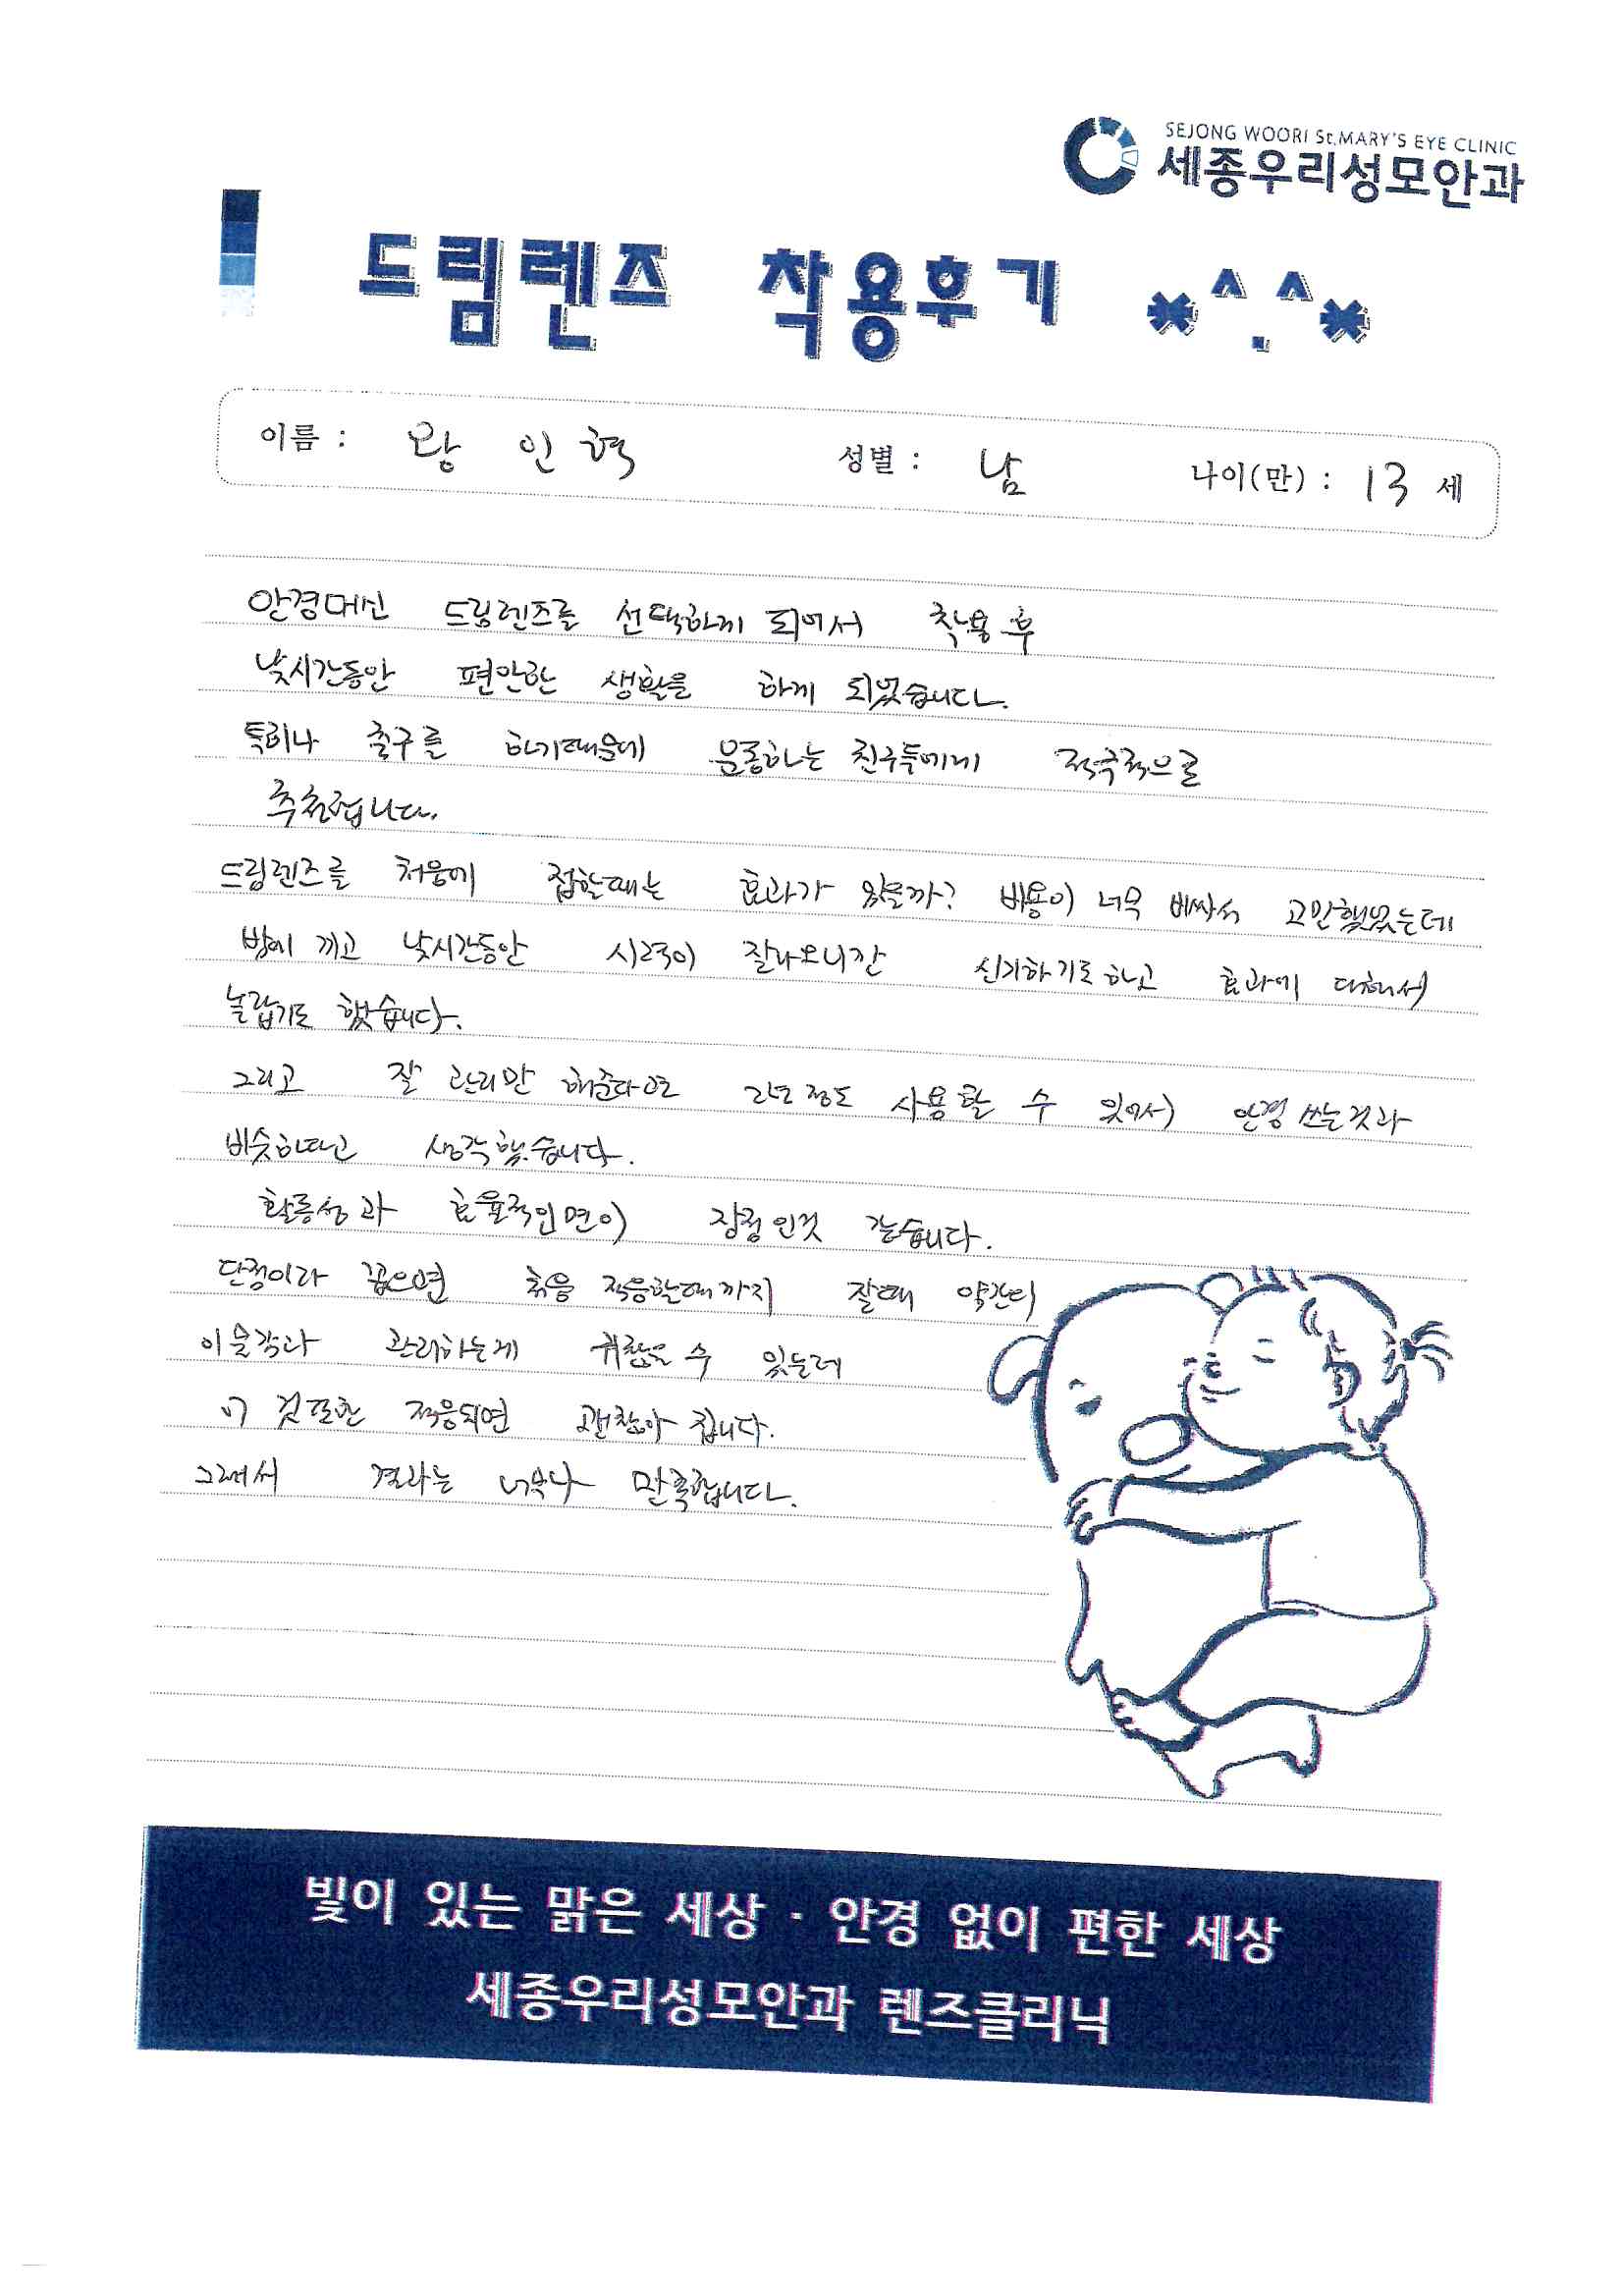 SEJONG WOORI St.MARY'S EYE CLINIC
세종우리성모안과
드림렌즈 착용후기 *^.^*
이름 : 왕 인 혁 성별 : 남 나이(만) : 13 세
안경대신 드림렌즈를 선택하게 되어서 착용 후
낮시간동안 편안한 생활을 하게 되었습니다.
특히나 축구를 하기때문에 운동하는 친구들에게 적극적으로
추천합니다.
드림렌즈를 처음에 접할때는 효과가 있을까? 비용이 너무 비싸서 고민했었는데
밤에 끼고 낮시간동안 시력이 잘나오니깐 신기하기도하고 효과에 대해서
놀랍기도 했습니다.
그리고 잘 관리만 해준다면 2년정도 사용할 수 있어서 안경 쓰는것과
비슷하다고 생각했습니다.
활동성과 효율적인면이 장점인것 같습니다.
단점이라 꼽으면 처음 적응할때까지 잘때 약간의
이물감과 관리하는게 귀찮을 수 있는데
이 것또한 적응되면 괜찮아 집니다.
그래서 결과는 너무나 만족합니다.
빛이 있는 맑은 세상 · 안경 없이 편한 세상
세종우리성모안과 렌즈클리닉